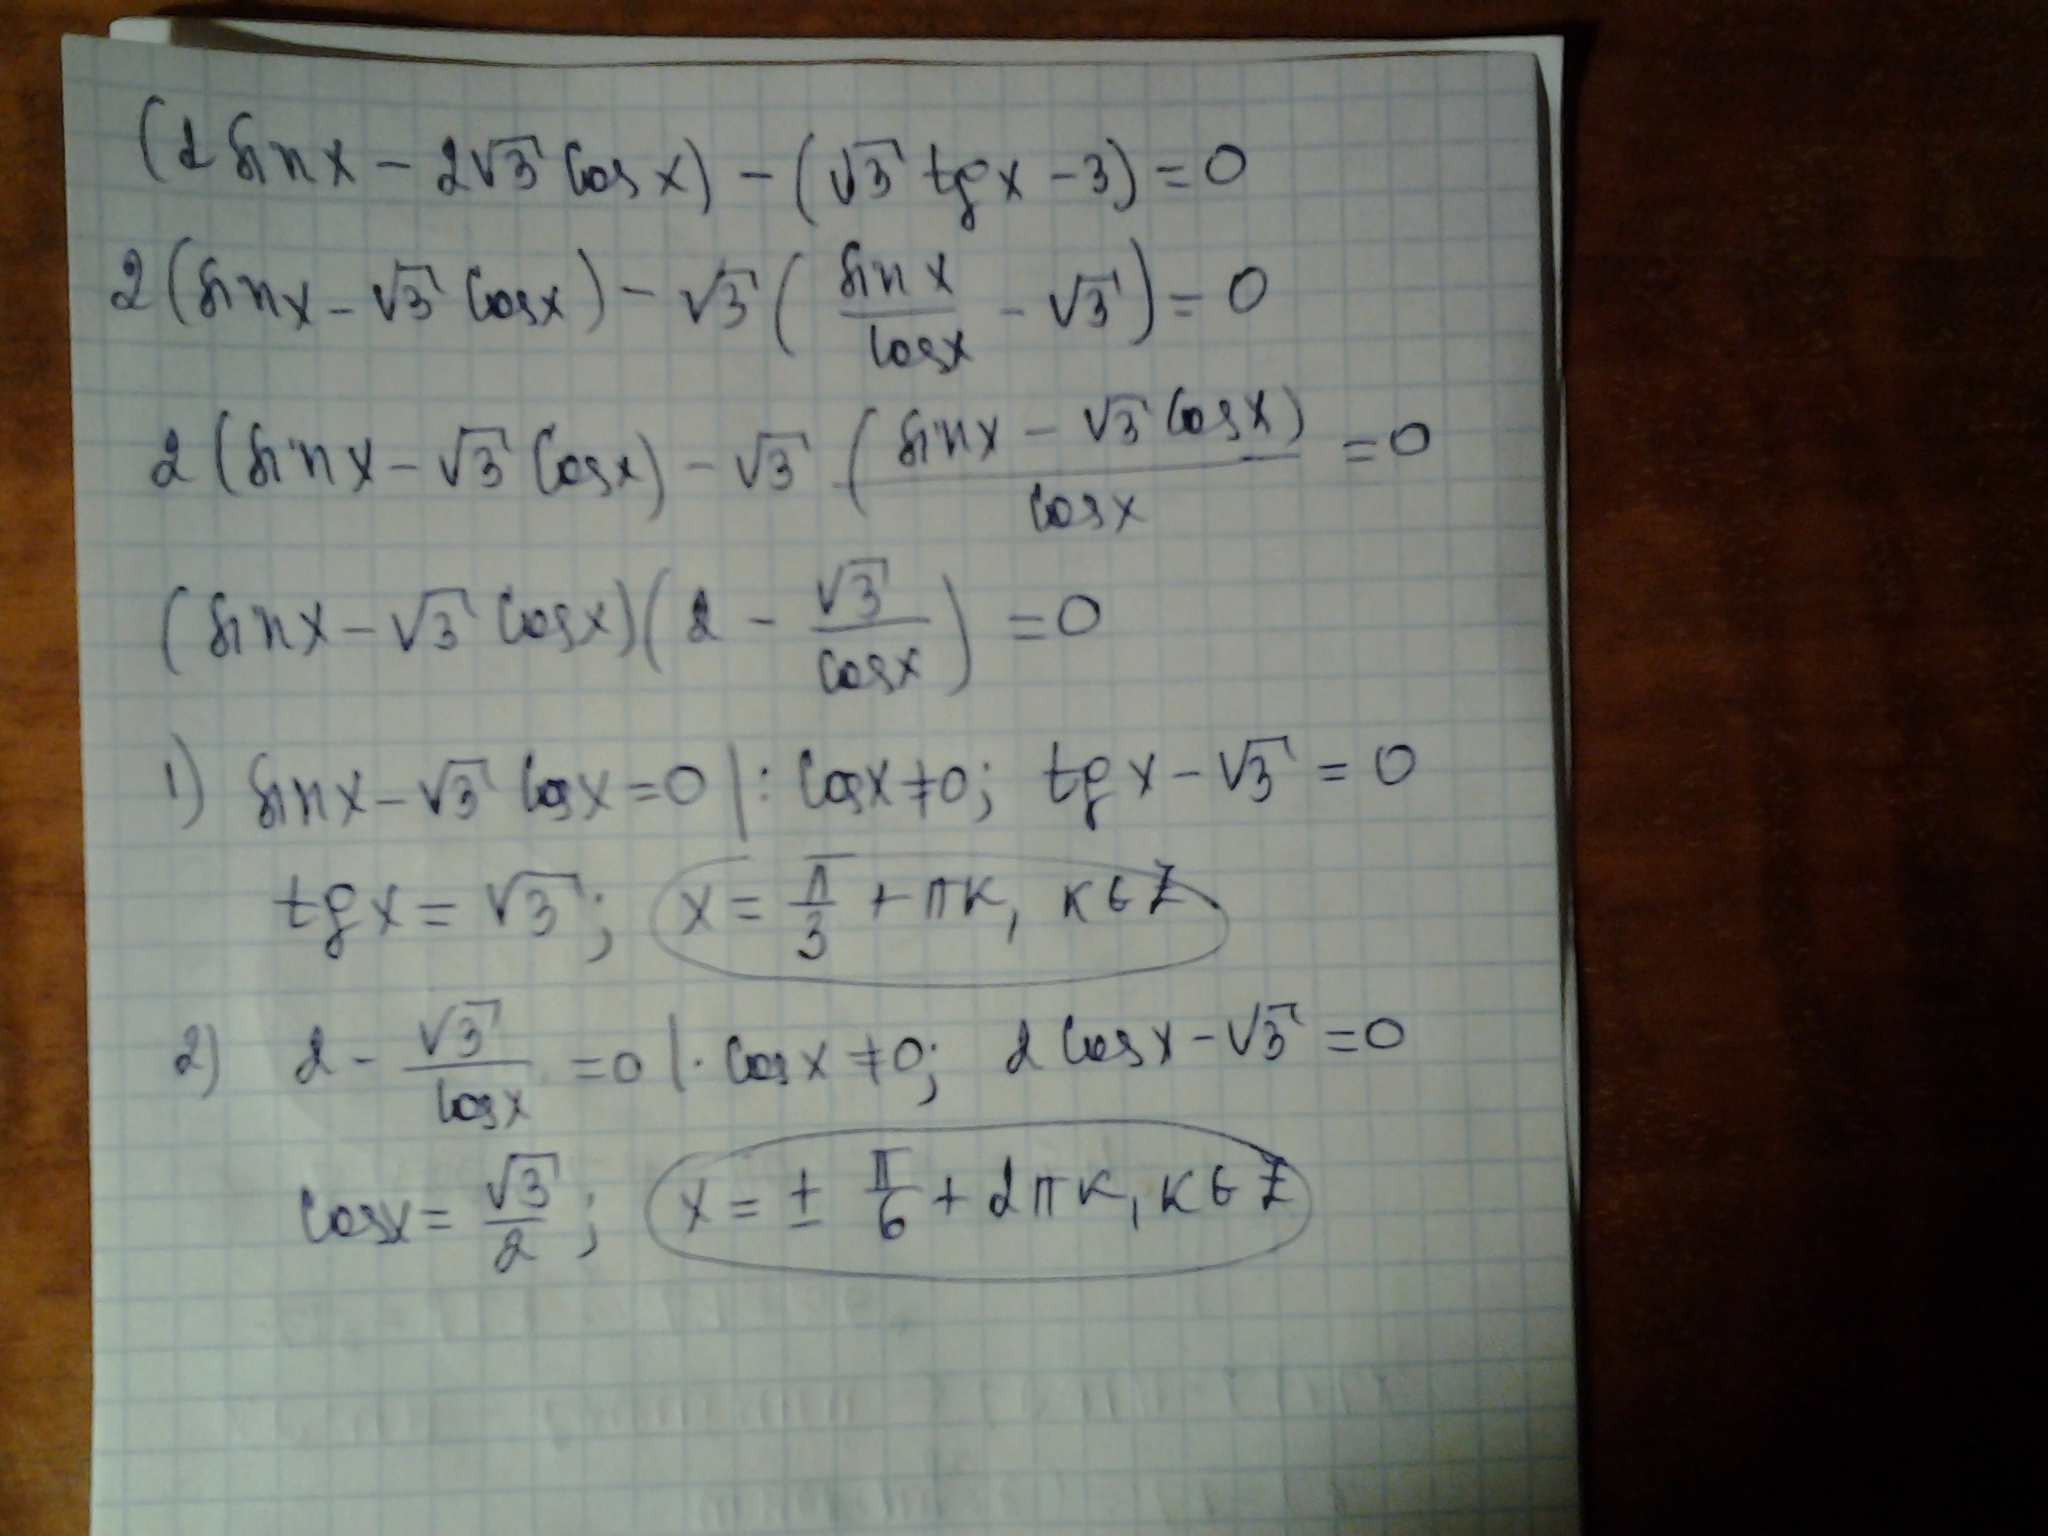 (2 sin x − 2√3 cos x) − (√3 tg x − 3) = 0
2 (sin x − √3 cos x) − √3 ( sin x / cos x − √3 ) = 0
2 (sin x − √3 cos x) − √3 (sin x − √3 cos x) / cos x = 0
(sin x − √3 cos x) (2 − √3 / cos x) = 0
1) sin x − √3 cos x = 0 | : cos x ≠ 0; tg x − √3 = 0
tg x = √3; x = π/3 + πк, к ∈ Z
2) 2 − √3 / cos x = 0 | · cos x ≠ 0; 2 cos x − √3 = 0
cos x = √3/2; x = ± π/6 + 2πк, к ∈ Z